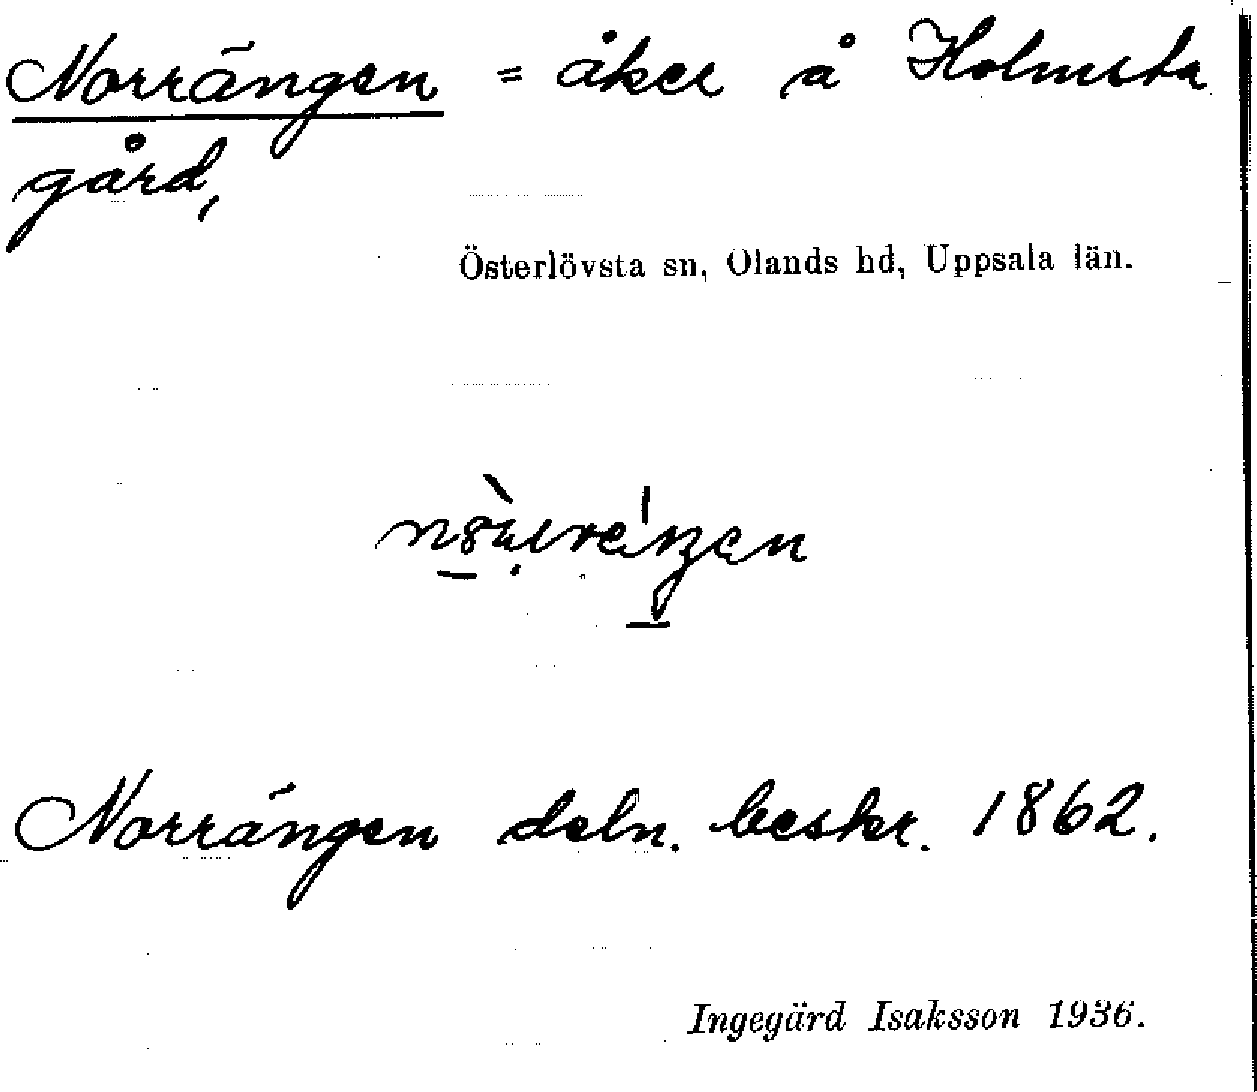 Norrängen = åker å Holmsta
gård,
Österlövsta sn, Olands hd, Uppsala län.
Norrängen deln. beskr. 1862.
Ingegärd Isaksson 1936.